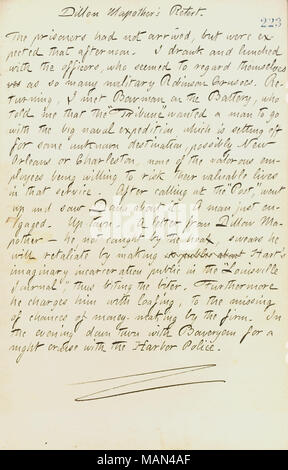 Dillon Mapother's Retort.
223
The prisoners had not arrived, but were ex-
pected that afternoon. I drank and lunched
with the officers, who seemed to regard themselves
as so many military Robinson Crusoes. Re-
turning, I met Bowman on the Battery, who
told me that the "Tribune wanted a man to go
with the big naval expedition, which is setting off
for some unknown destination, possibly New
Orleans or Charleston, none of the valorous em-
ployees being willing to risk their valuable lives
in that service. After calling at the "Post," went
up and saw Dana, about it. A man just en-
gaged. Up town. A letter from Dillon Ma-
pother — he not caught by the hoax, swears he
will retaliate by making Hart's
imaginary incarceration public in the "Louisville
Journal," thus biting the biter. Furthermore
he charges him with loafing, to the missing
of chances of money-making by the firm. In
the evening down town with Baweryem for a
night cruise with the Harbor Police.
alamy
Image ID: MAN4AF
www.alamy.com